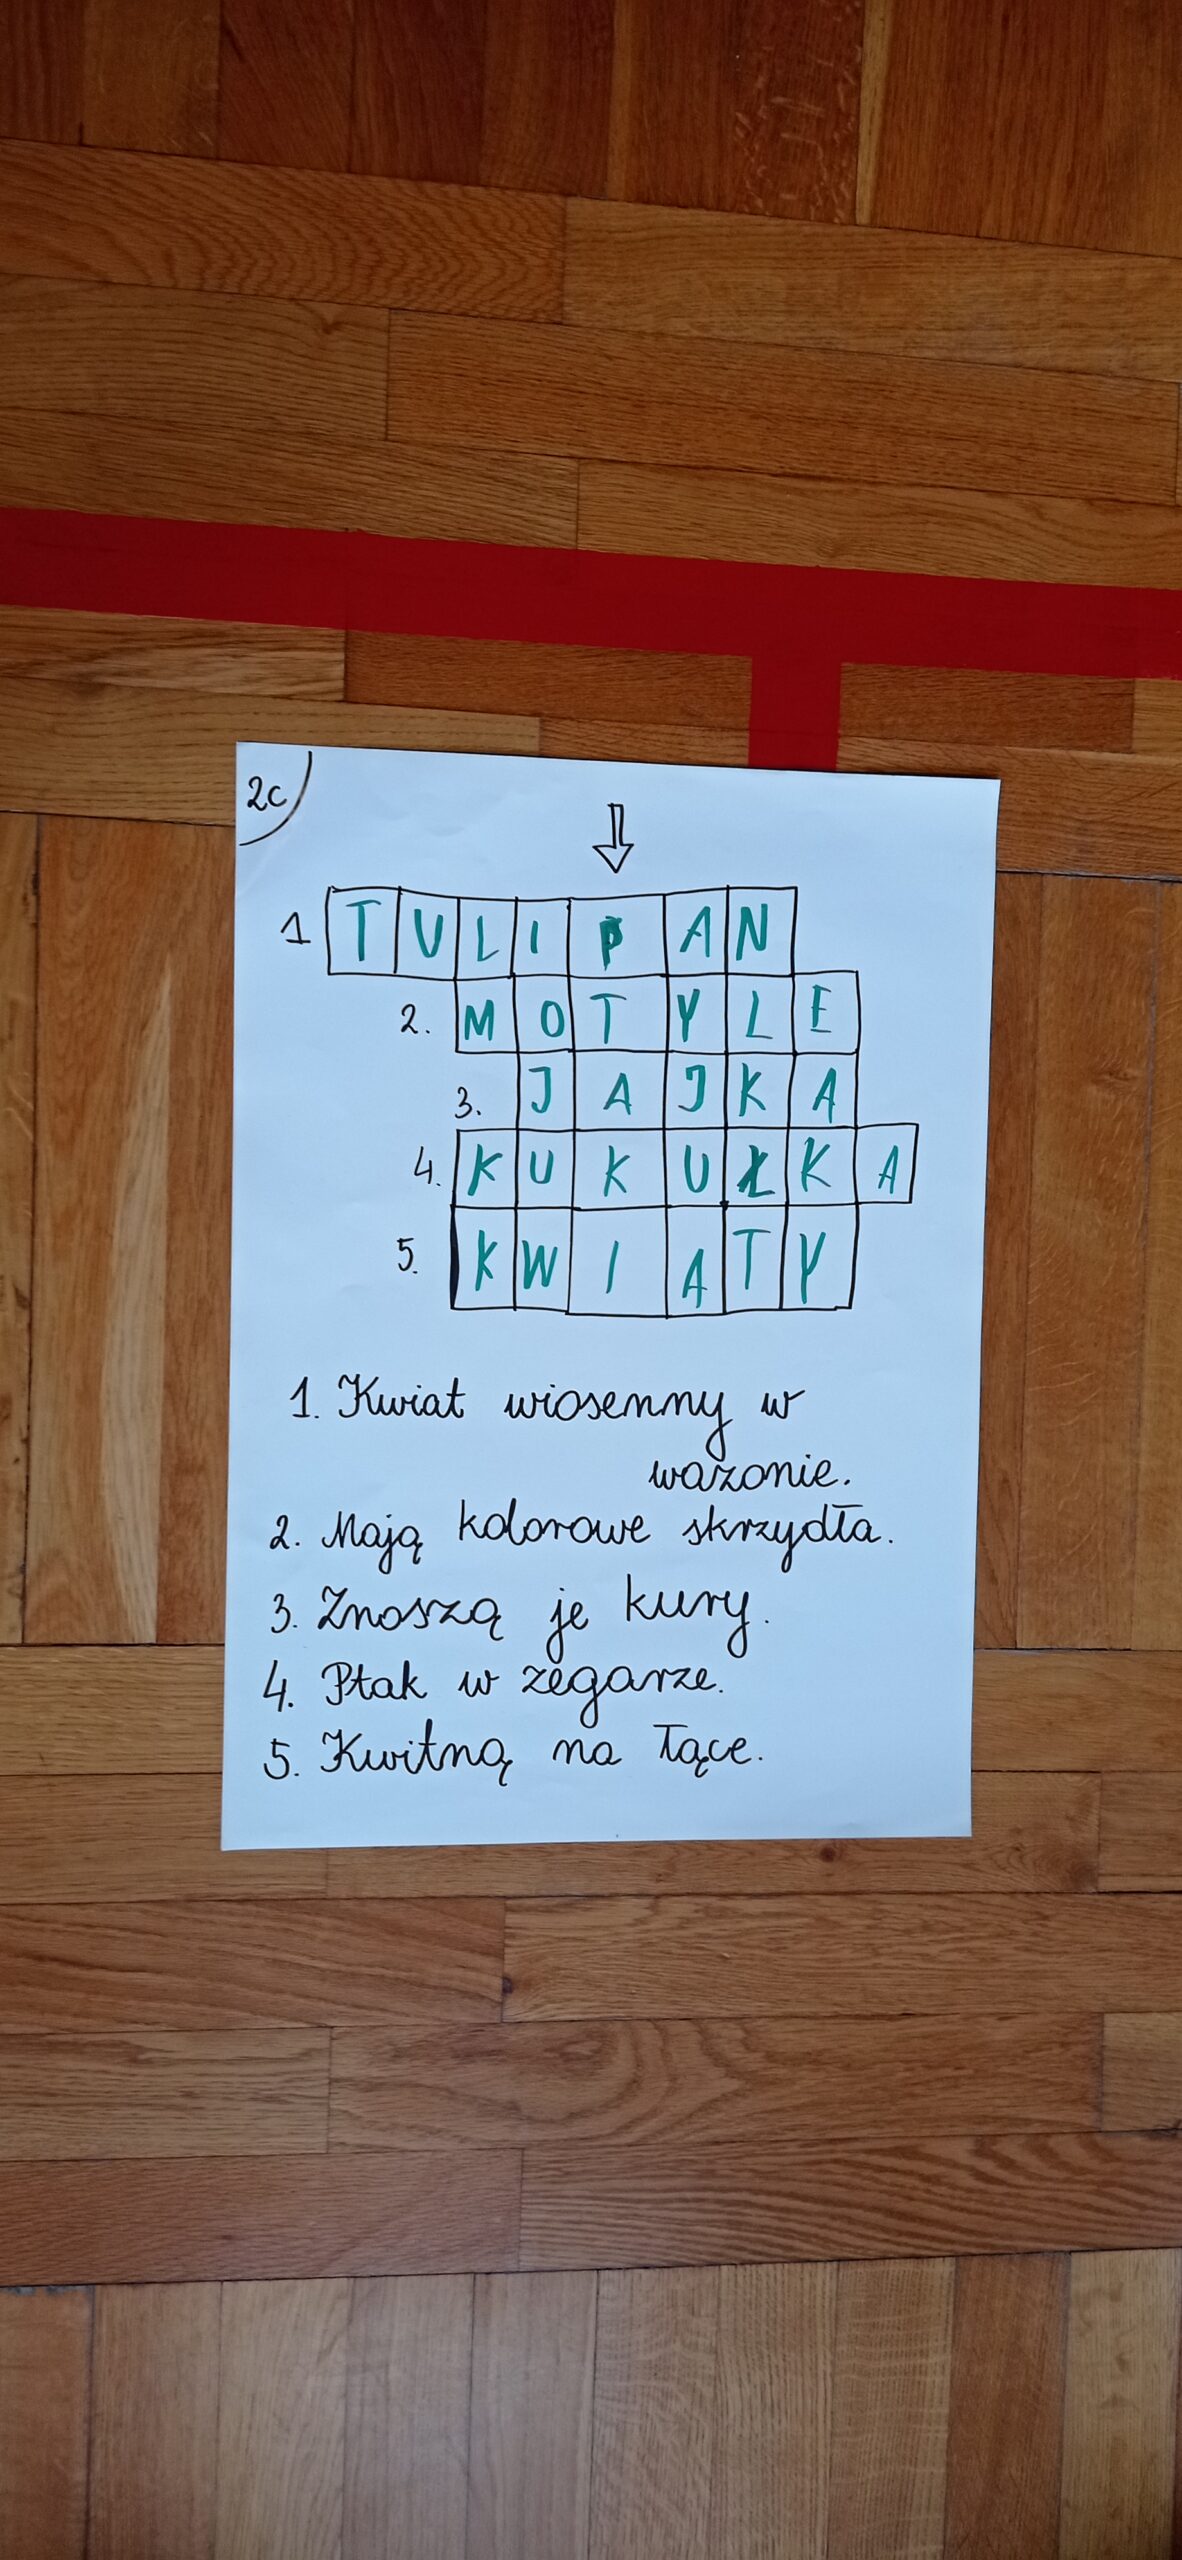 2c
1 TULIPAN
2. MOTYLE
3. JAJKA
4. KUKUŁKA
5. KWIATY
1. Kwiat wiosenny w
wazonie.
2. Mają kolorowe skrzydła.
3. Znoszą je kury.
4. Ptak w zegarze.
5. Kwitną na łące.